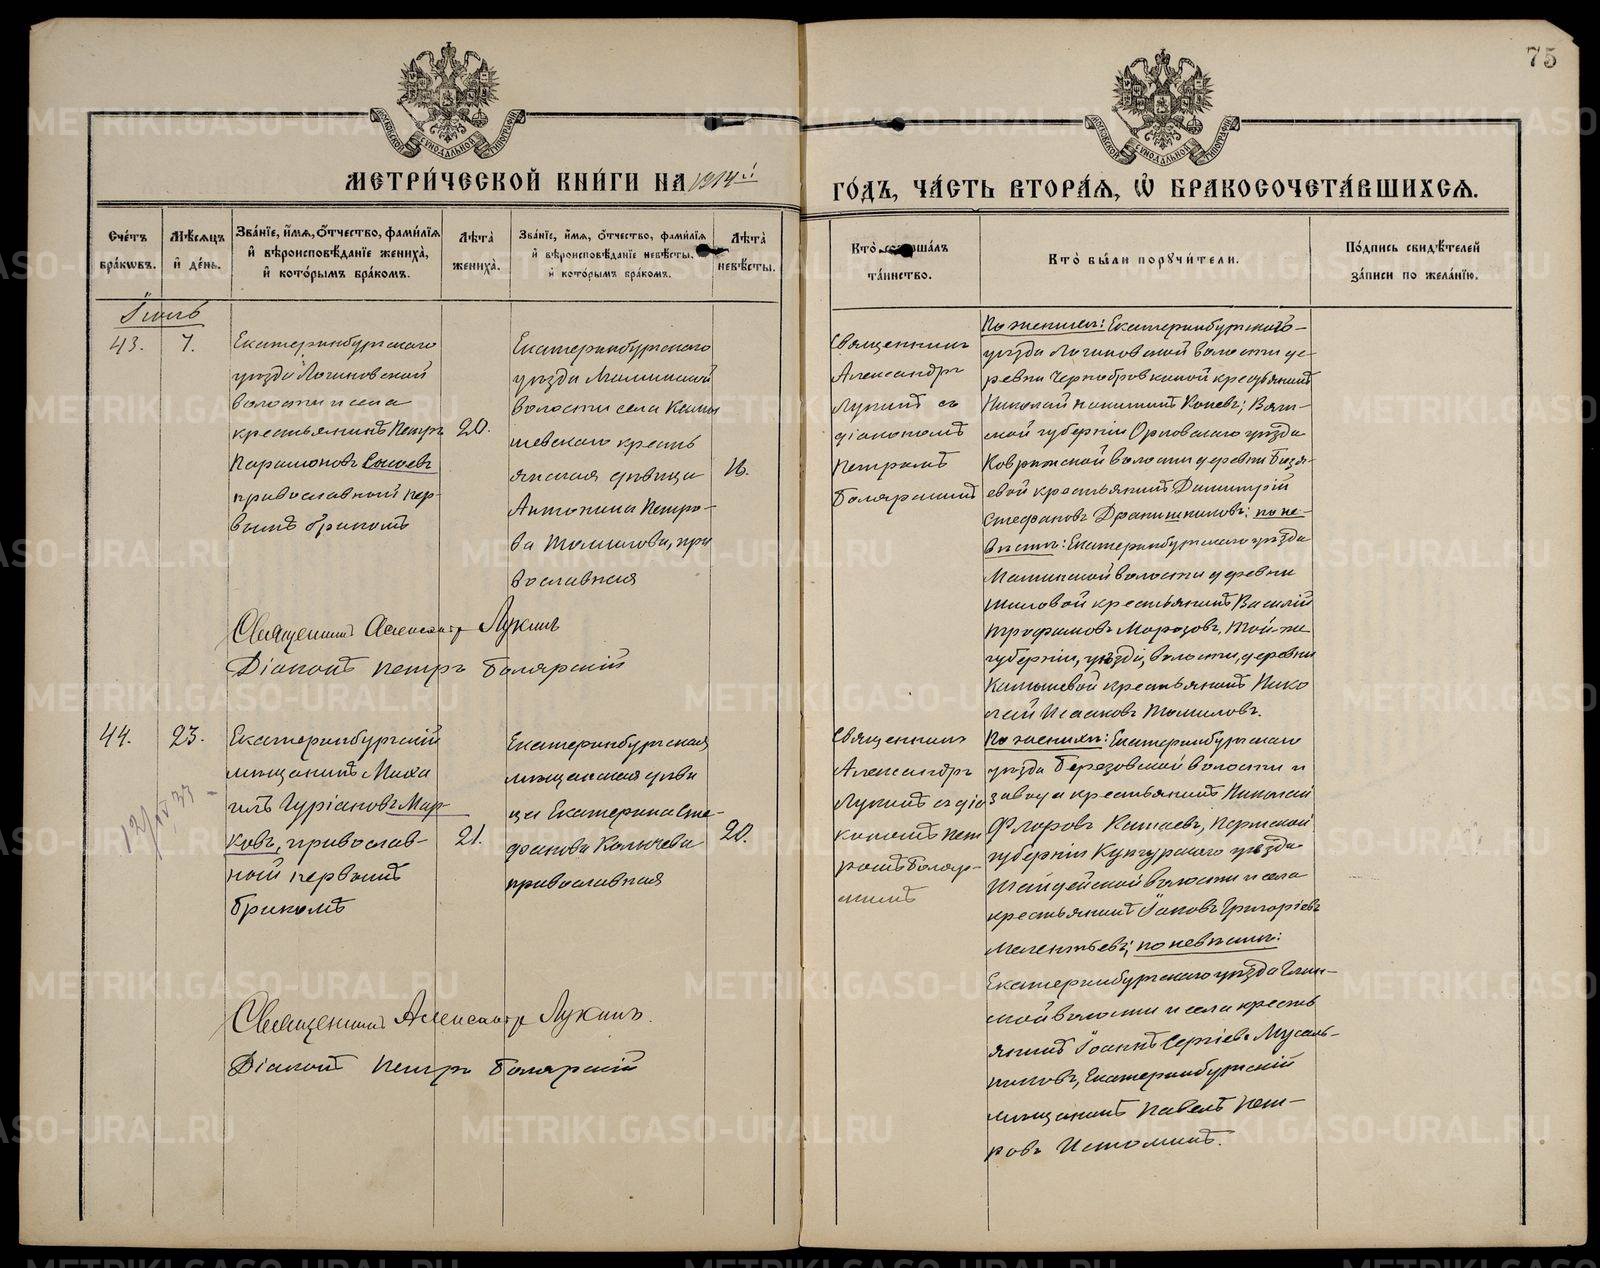 75
МОСКОВСКОЙ СѴНОДАЛЬНОЙ ТИПОГРАФІИ
МОСКОВСКОЙ СѴНОДАЛЬНОЙ ТИПОГРАФІИ
МЕТРИ́ЧЕСКОЙ КНИ́ГИ НА 1914й
ГО́ДЪ, ЧА́СТЬ ВТОРА́Я, Ѽ БРАКОСОЧЕТА́ВШИХСЯ.
Сче́тъ бра́кѡвъ.
Мѣ́сяцъ и҆ де́нь.
Зва́нїе, и҆́мя, о҆́тчество, фами́лїя и҆ вѣроисповѣ́данїе жениха̀, и҆ кото́рымъ бра́комъ.
Лѣ́та̀ жениха̀.
Зва́нїе, и҆́мя, о҆́тчество, фами́лїя и҆ вѣроисповѣ́данїе невѣ́сты, и҆ кото́рымъ бра́комъ.
Лѣ́та̀ невѣ́сты.
Кто̀
та́инство.
Кто̀ бы́ли поꙋчи́тели.
По́дпись свидѣ́телей за́писи по жела́нїю.
Іюль
43.
7.
Екатеринбургскаго
уѣзда Логиновской
волости и села
крестьянинъ Петръ
Парамоновъ Сысоевъ
православный пер-
вымъ бракомъ
20.
Екатеринбургскаго
уѣзда Маминской
волости села
крестья
янская дѣвица
Антонина Петро-
ва Томилова, пра
вославная
16.
Священникъ
Александръ
Лукинъ съ
діакономъ
Петромъ
Боярскимъ
По женихѣ: Екатеринбургскаго
уѣзда Логиновской волости де-
ревни Чернобровкиной крестьянинъ
Николай Никитинъ Коневъ; Вят-
ской губерніи Орловскаго уѣзда
волости деревни
евой крестьянинъ Димитрій
Стефановъ по не-
вѣстѣ: Екатеринбургскаго уѣзда
Маминской волости деревни
Шиловой крестьянинъ Василій
Трофимовъ Морозовъ, той же
губерніи, уѣзда, волости, деревни
крестьянинъ Нико
лай Исаковъ Томиловъ.
Священникъ Александръ Лукинъ
Діаконъ Петръ Боярскій
44.
23.
12/IV 37
Екатеринбургскій
мѣщанинъ Миха
илъ Гуріановъ Мар-
ковъ, православ-
ный первымъ
бракомъ
21.
Екатеринбургская
мѣщанская дѣви
ца Екатерина Сте-
фанова Колычева
православная
20.
Священникъ
Александръ
Лукинъ съ діа
кономъ Пет
ромъ Бояр-
скимъ
По женихѣ: Екатеринбургскаго
уѣзда Березовской волости и
завода крестьянинъ Николай
Флоровъ Пермской
губерніи Кунгурскаго уѣзда
волости и села
крестьянинъ Іаковъ Григоріевъ
по невѣстѣ:
Екатеринбургскаго уѣзда Глин-
ской волости и села крестья
янинъ Іоаннъ Сергіевъ Мусаль-
никовъ, Екатеринбургскій
мѣщанинъ Павелъ Пет-
ровъ Истоминъ.
Священникъ Александръ Лукинъ.
Діаконъ Петръ Боярскій
METRIKI.GASO-URAL.RU